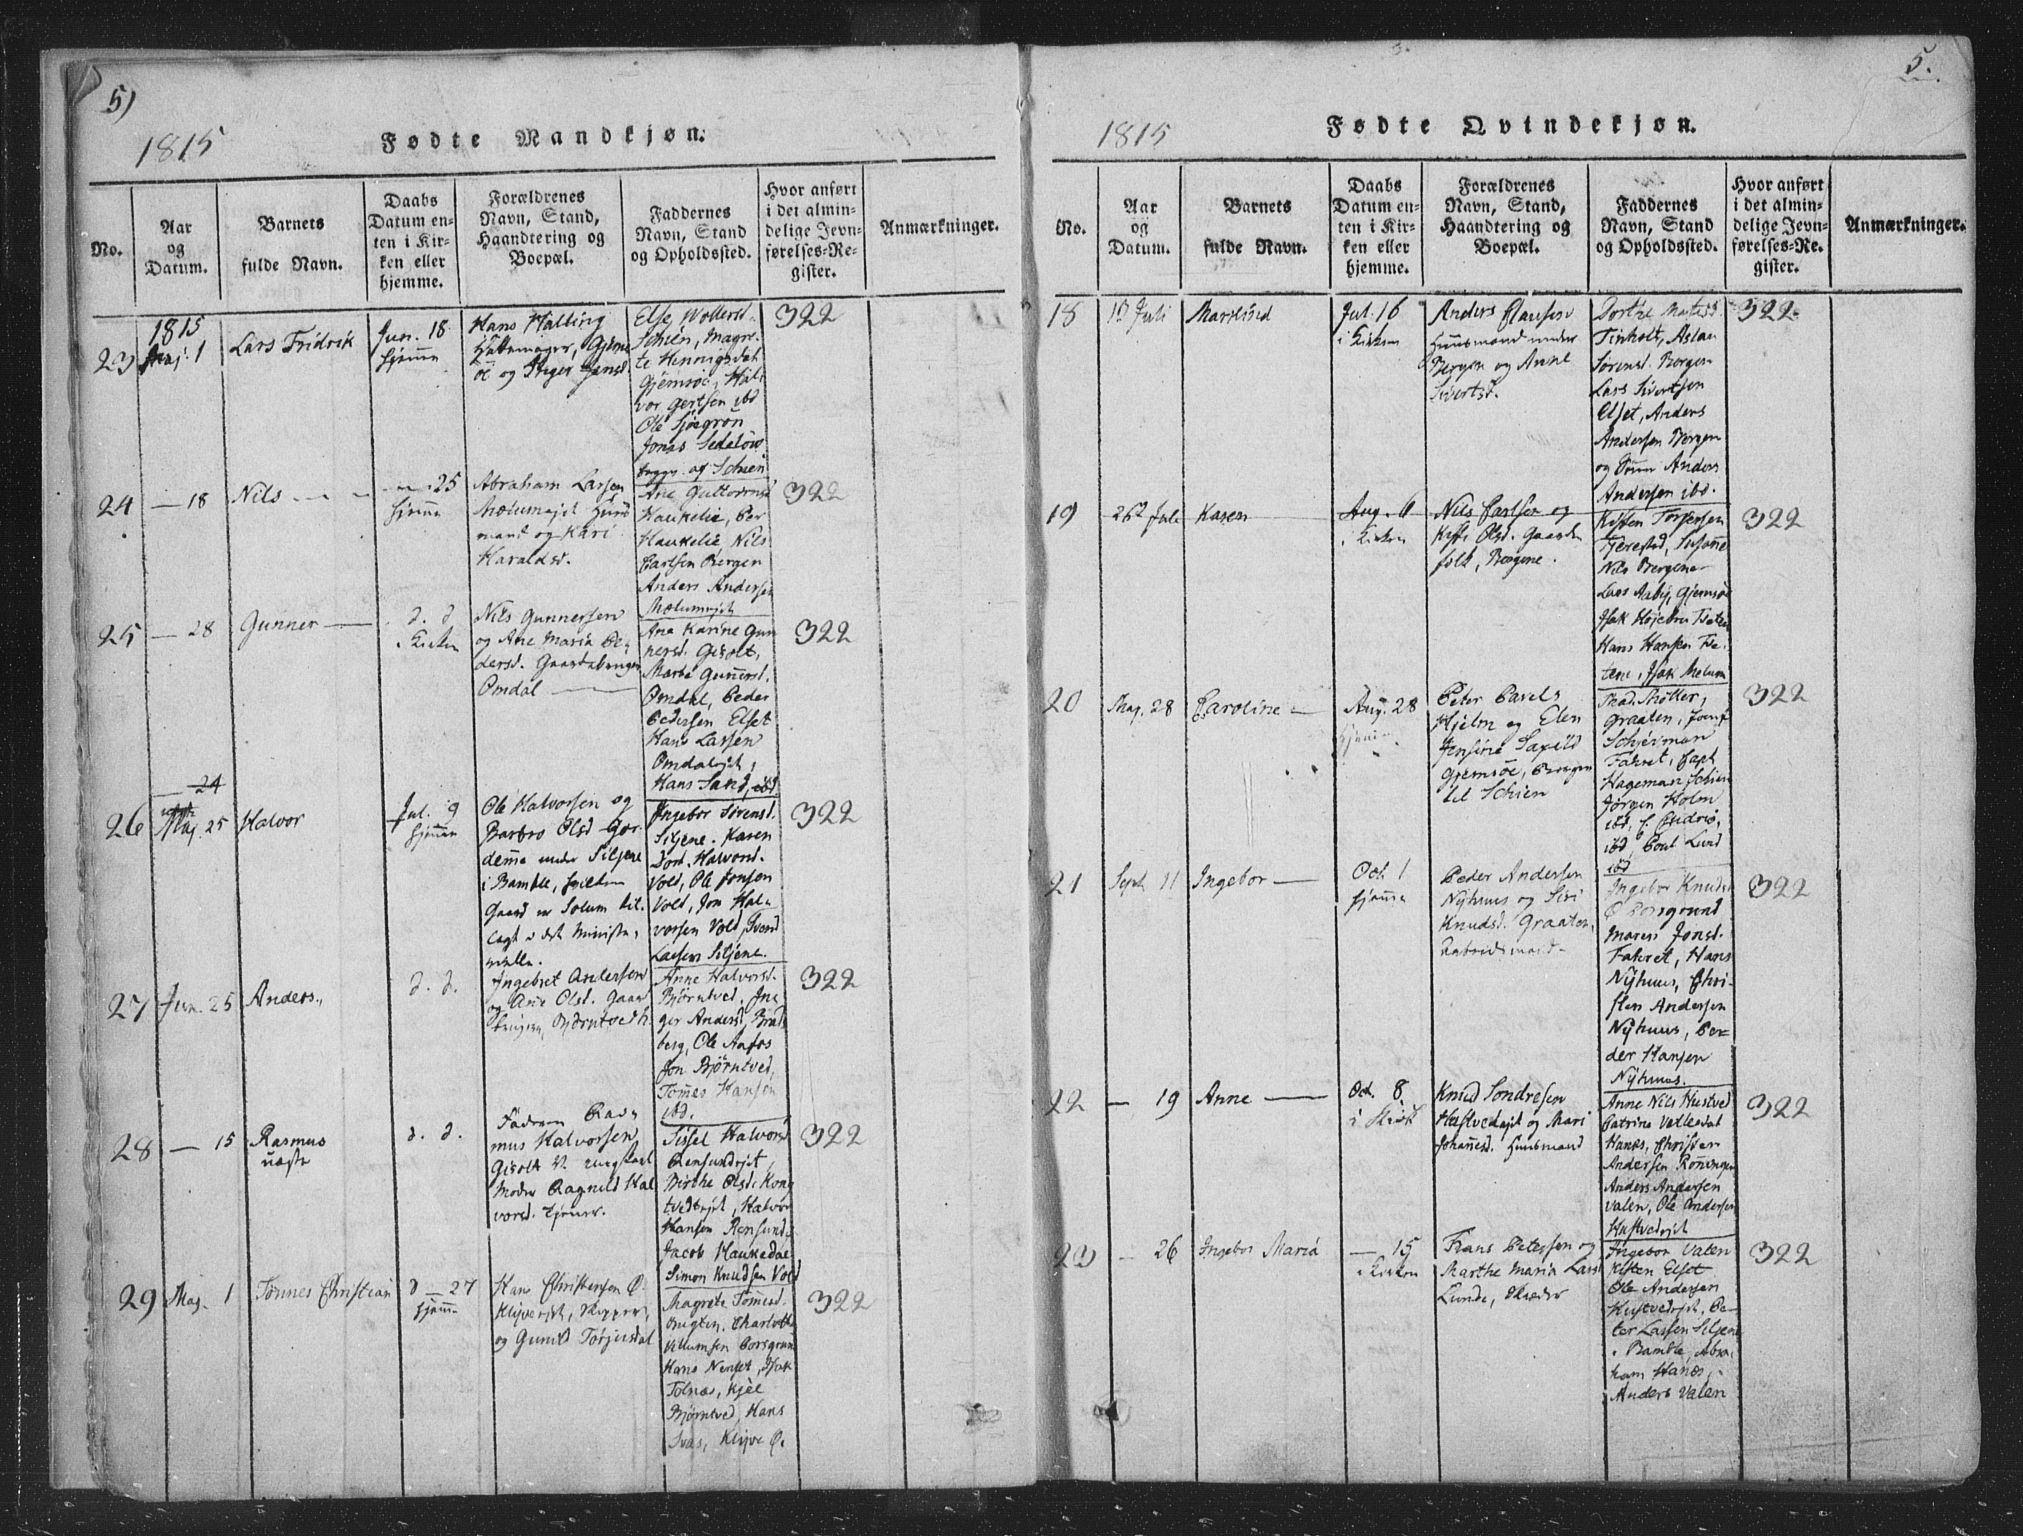 5)
1815
Fødte Mandkjøn.
No.
Aar
og
Datum.
Barnets
fulde Navn.
Daabs
Datum en-
ten i Kir-
ken eller
hjemme.
Forældrenes
Navn, Stand,
Haandtering og
Boepæl.
Faddernes
Navn, Stand
og Opholdssted.
Hvor anført
i det almin-
delige Jevn-
førelses-Re-
gister.
Anmærkninger.
23
1815
Maj. 1
Lars Fridrik
Jun. 18
hjemme
Hans Halling
Hattemager, Gjems
öe og Jnger Jensd
Else Wollersd.
Schien, Magre-
te Hennigsdat
Gjemsöe, Hal-
vor Gertsen ibd
Ole Sjøegrøn
Jonas Sedelöw
begge af Schien
322
24
— 18
Nils
— 25
hjemme
Abraham Larsen
Mælumejet Huus
mand og Kari
Haraldsd.
Ane Guttormsd
Haukelie, Per
Haukelie Nils
Carlsen Bergen
Anders Andersen
Mælumejet
322
25
— 28
Gunner
d. d.
i Kirken
Nils Gunnersen
og Ane Maria Pe-
dersd. Gaardebruger
Omdal
Ane Karine Gun
nersd. Gisolt,
Marte Gunnersd.
Omdal, Peder
Pedersen Elset
Hans Larsen
Omdalejet,
Hans Sand, ibd
322
26
24
Maj. 25
Halvor
Jul. 9
hjemme
Ole Halvorsen og
Barbro Olsd Gar-
demme under Siljene
i Bamble, hvilken
Gaard er Solum til-
lagt i det Ministe-
rielle.
Jngebor Sørensd.
Siljene. Karen
Dort. Halvord.
Vold, Ole Jonsen
Vold, Jon Hal-
vorsen Vold, Svend
Larsen Siljene.
322
27
Jun. 25
Anders.,
d. d.
Jngebret Andersen
og Ane Olsd. Gaar
bruger, Bjørntvedt.
Anne Halvorsd.
Bjørntved, Jn-
ger Andersd, Brats
berg, Ole Aafos
Jon Bjørntved,
Tomes Hansen
ibd.
322
28
— 15
Rasmus
uægte
d. d.
Faderen Ras-
mus Halvorsen
Gisolt V. ungkarl
Moder Ragnild Hal
vorsd. tjener.
Sissel Halvorsd
Rensundejet,
Birthe Olsd. Kong
tvedtejet, Halvor
Hansen Rensund,
Jacob Haukedae
Simon Knudsen Vold
322
29
Maj. 1
Tønnes Christian
d — 27
hjemme
Hans Christensen Ø.
Klyveejet, Skipper,
og Gunild Torjersdat
Magrete Tomesd.
Bugten, Charlotte
Villumsen Porsgrun
Hans Nenset, Isak
Tolnæs, Kjel
Bjørntved, Hans
Svas, Klyve Ø.
322
5.
1815
Fødte Qvindekjøn.
No.
Aar
og
Datum.
Barnets
fulde Navn.
Daabs
Datum en-
ten i Kir-
ken eller
hjemme.
Forældrenes
Navn, Stand,
Haandtering og
Boepæl.
Faddernes
Navn, Stand
og Opholdssted.
Hvor anført
i det almin-
delige Jevn-
førelses-Re-
gister.
Anmærkninger.
18
Juli
Jul. 16
i Kirken
Anders Clausen
Huusmand under
Bergen og Anne
Sivertsd.
Dorthe
Tinholt, Aslau
Sørensd. Bergen
Lars Sivertsen
Elset, Anders
Andersen Bergen
og Anders
Andersen ibd.
322.
19
Juli
Karen
Aug. 6
i Kirken
Nils Carlsen og
Olsd. Gaard-
folk, Bergene.
Kisten Torgersen
Fjerestad, Susanne
Nils Bergene
Lars Aaby, Gjemsöe
Isak Højebru
Hans Hansen
Isak Melum
322
20
Maj. 28
Caroline
Aug. 28
hjemme
Peter Pavels
Hjelm og Elen
Jensine Saxild
Gjemsöe, Borger
til Schien
Mad. Møller,
Graaten, Jomf.
Schierman
Fahret, Capt
Hageman Schien
Jørgen Holm
ibd,
ibd, Poul Lund
ibd
322
21
Sept. 11
Ingebor
Oct. 1
hjemme
Peder Andersen
Nyhuus og Siri
Knudsd. Graaten,
Ingebor Knudsd
Ø Porsgrund
Maren Jonsd.
Fahret, Hans
Nyhuus, Chri-
sten Andersen
Nyhuus, Pe-
der Hansen
Nyhuus.
322
22
— 19
Anne
Oct. 8
i Kirk
Knud Sondresen
Hustvedejet og Mari
Johannesd. Huusmand
Anne Nils Hustved
Catrine Vetlesdat
Hanæs, Christen
Andersen Rønningen
Anders Andersen
Valen, Ole Andersen
Hustvedejet
322
23
— 26
Ingebor Maria
— 15
i Kirken
Frans Petersen og
Marthe Maria Larsd
Lunde, Skræder
Ingebor Valen
Kisten Elset
Ole Andersen
Hustvedejet, Pe-
ter Larsen Siljene
i Bamble, Abra-
ham Hanæs,
Anders Valen
322